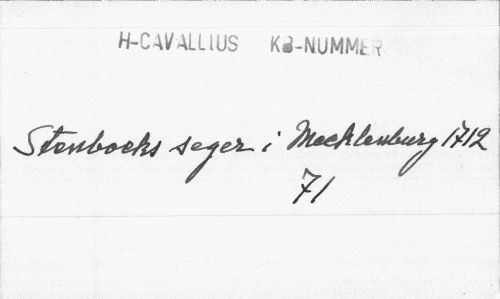 H-CAVALLIUS KB-NUMMER
Stenbocks seger i Mecklenburg 1712
71